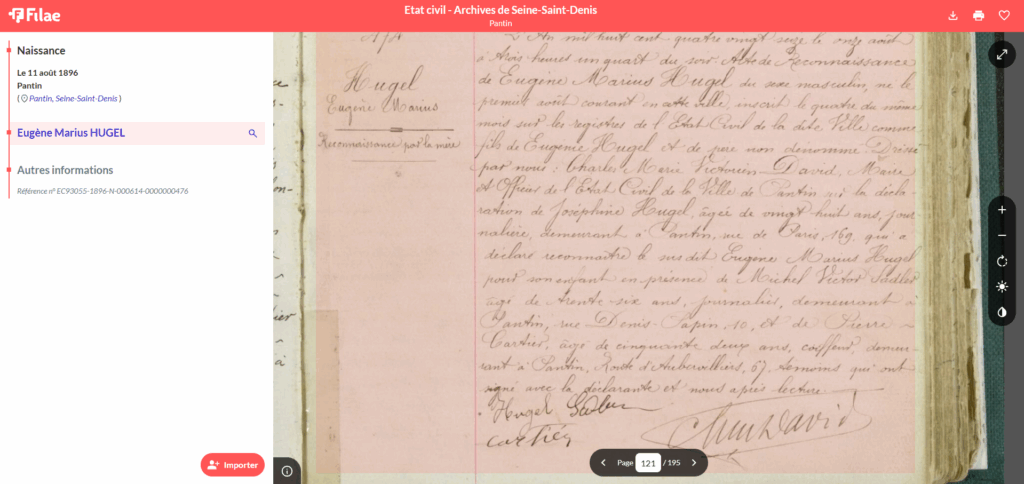 Filae
Etat civil - Archives de Seine-Saint-Denis
Pantin
Naissance
Le 11 août 1896
Pantin
( Pantin, Seine-Saint-Denis )
Eugène Marius HUGEL
Autres informations
Référence n° EC93055-1896-N-000614-0000000476
Importer
Hugel
Eugène Marius
Reconnaissance par la mère
L'An mil huit cent quatre vingt seize le onze août
à trois heures un quart du soir Acte de Reconnaissance
de Eugène Marius Hugel du sexe masculin, né le
premier août courant en cette ville, inscrit le quatre du même
mois sur les registres de l'Etat Civil de la dite Ville comme
fils de Eugénie Hugel et de père non dénommé. Dressé
par nous: Charles Marie Victurnien David, Maire
et Officier de l'Etat Civil de la Ville de Pantin sur la décla-
ration de Joséphine Hugel, âgée de vingt huit ans, jour-
nalière, demeurant à Pantin, rue de Paris, 169, qui a
déclaré reconnaître le susdit Eugène Marius Hugel
pour son enfant en présence de Michel Victor Sadler
âgé de trente six ans, journalier, demeurant à
Pantin, rue Denis-Papin, 10, et de Pierre
Cartier, âgé de cinquante deux ans, coiffeur, demeu-
rant à Pantin, Route d'Aubervilliers, 67, témoins qui ont
signé avec la déclarante et nous après lecture
Hugel Sadler
Cartier
David
Page 121 / 195